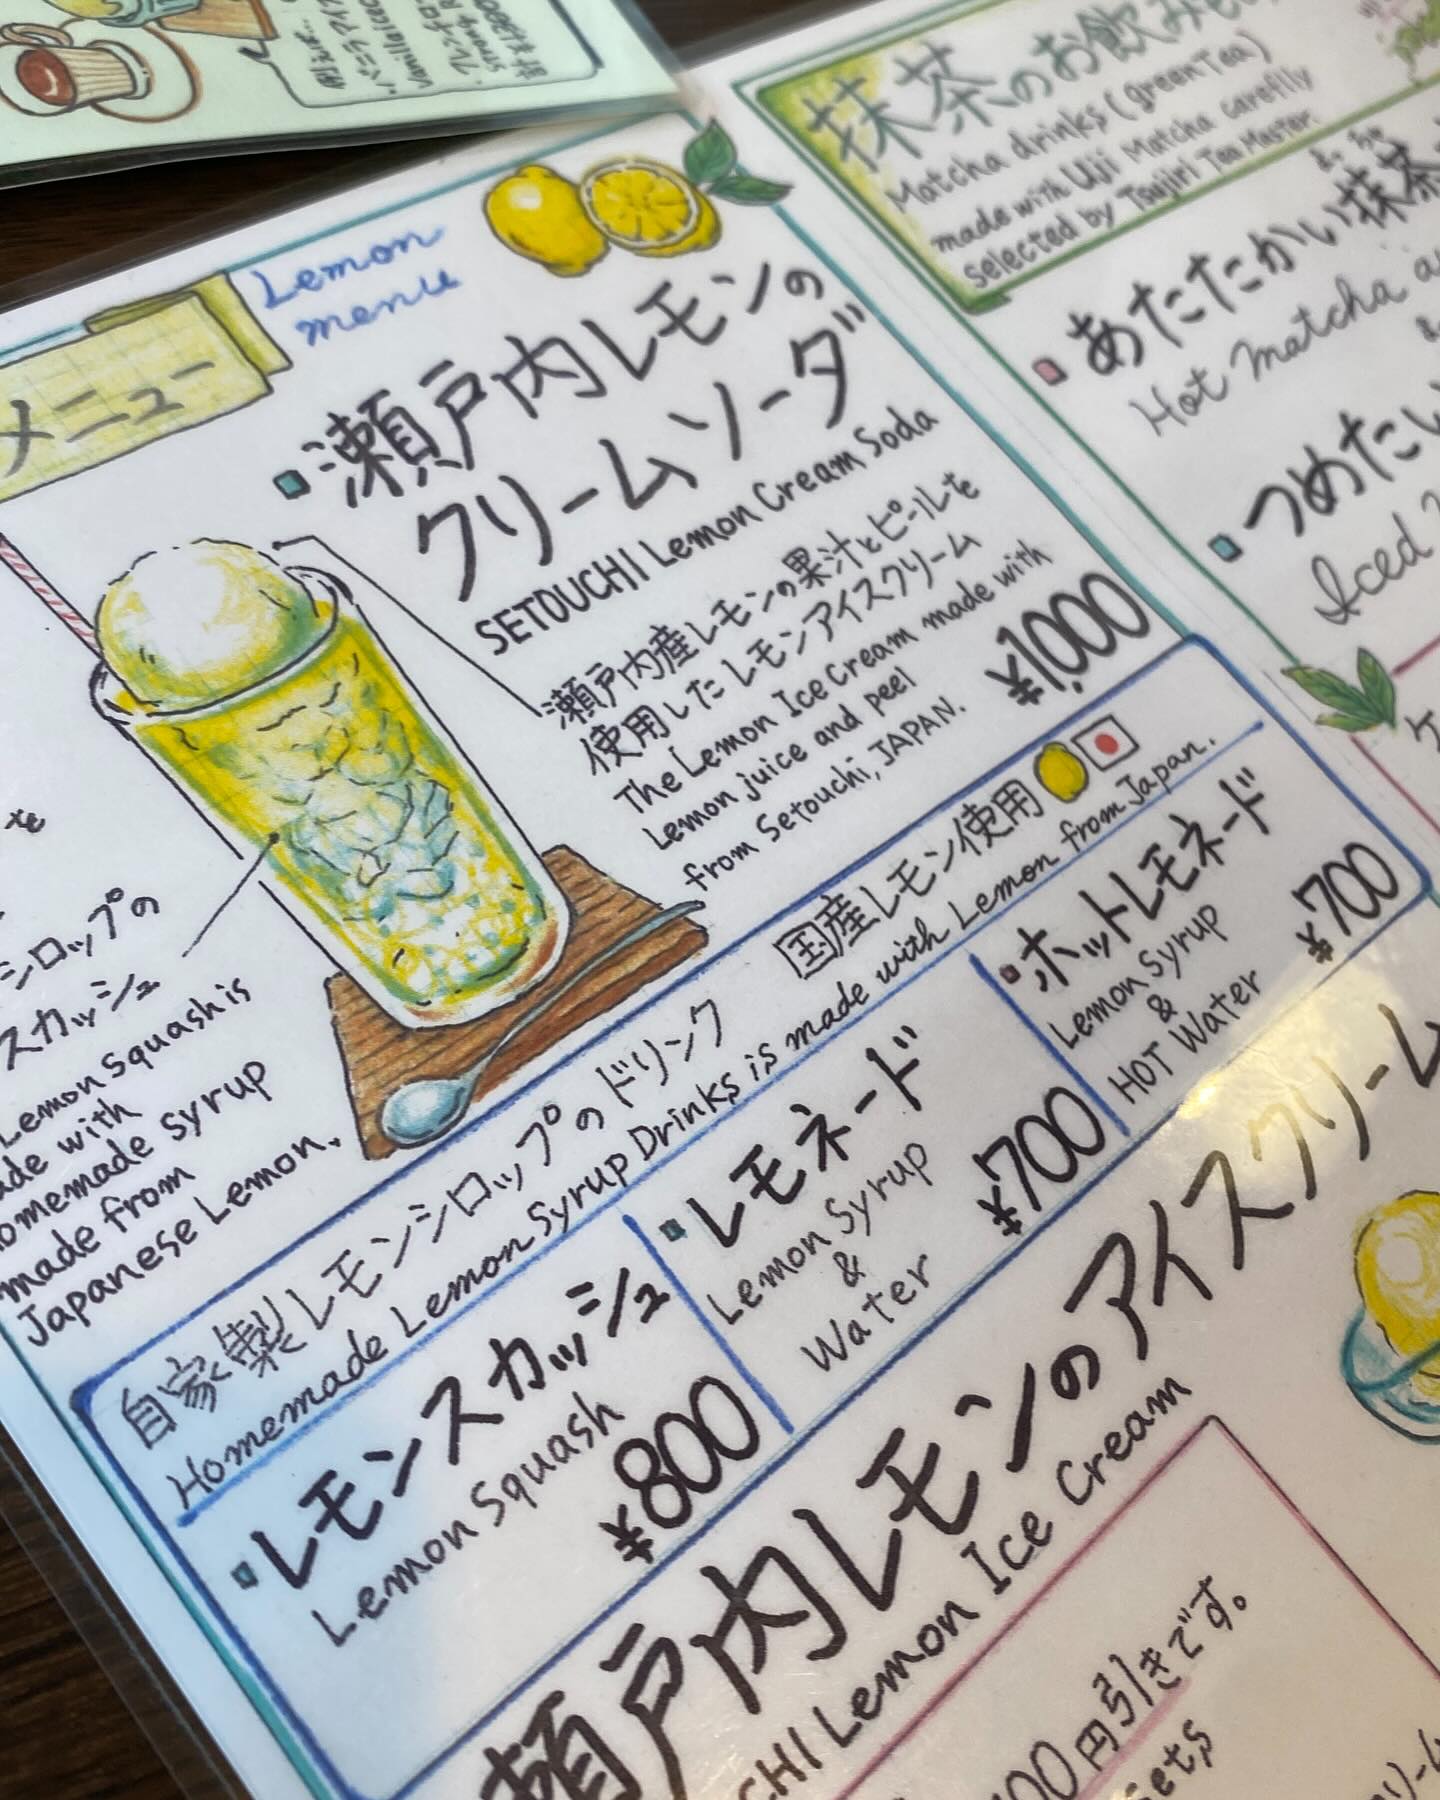 メニュー
Lemon
menu
瀬戸内レモンの
クリームソーダ
SETOUCHI Lemon Cream Soda
瀬戸内産レモンの果汁とピールを
使用したレモンアイスクリーム
The Lemon Ice Cream made with
Lemon juice and peel
from Setouchi, JAPAN.
¥1,000
を
シロップの
スカッシュ
Lemon Squash is
made with
homemade syrup
made from
Japanese Lemon.
国産レモン使用
自家製レモンシロップのドリンク
Homemade Lemon Syrup Drinks is made with Lemon from Japan.
レモンスカッシュ
Lemon Squash
¥800
レモネード
Lemon Syrup
&
Water
¥700
ホットレモネード
Lemon Syrup
&
HOT Water
¥700
瀬戸内レモンのアイスクリーム
CHI Lemon Ice Cream
00円引きです。
sets
抹茶のお飲みもの
Matcha drinks (green Tea)
made with Uji Matcha careflly
selected by Tsujiri Tea Master.
あたたかい抹茶
Hot Matcha
&
つめたい
Iced